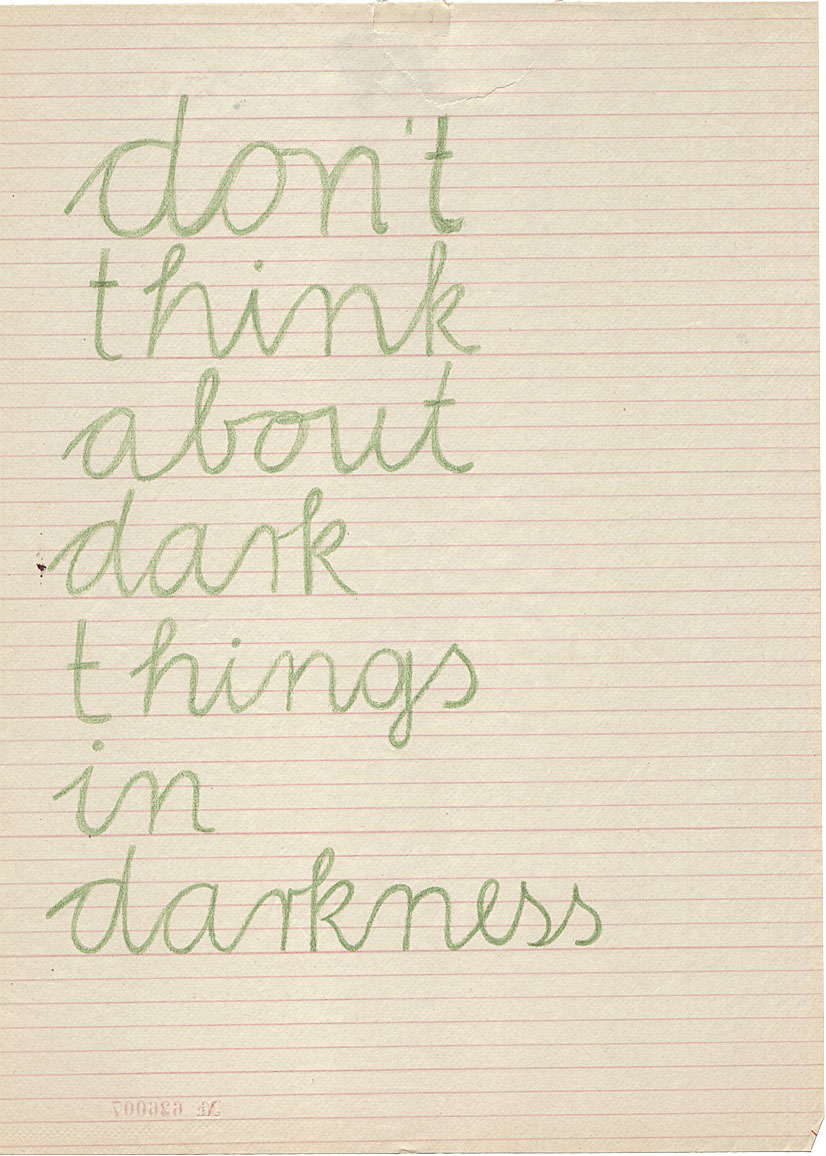 don't
think
about
dark
things
in
darkness
№ 636007